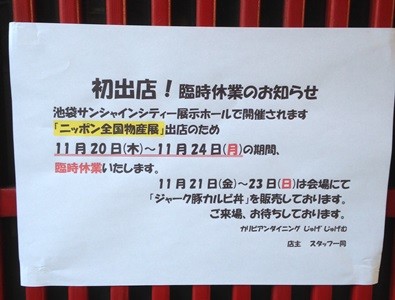 初出店！臨時休業のお知らせ
池袋サンシャインシティー展示ホールで開催されます
「ニッポン全国物産展」出店のため
11月20日(木)～11月24日(月)の期間、
臨時休業いたします。
11月21日(金)～23日(日)は会場にて
「ジャーク豚カルビ丼」を販売しております。
ご来場、お待ちしております。
カリビアンダイニング じゅげ じゅげむ
店主 スタッフ一同